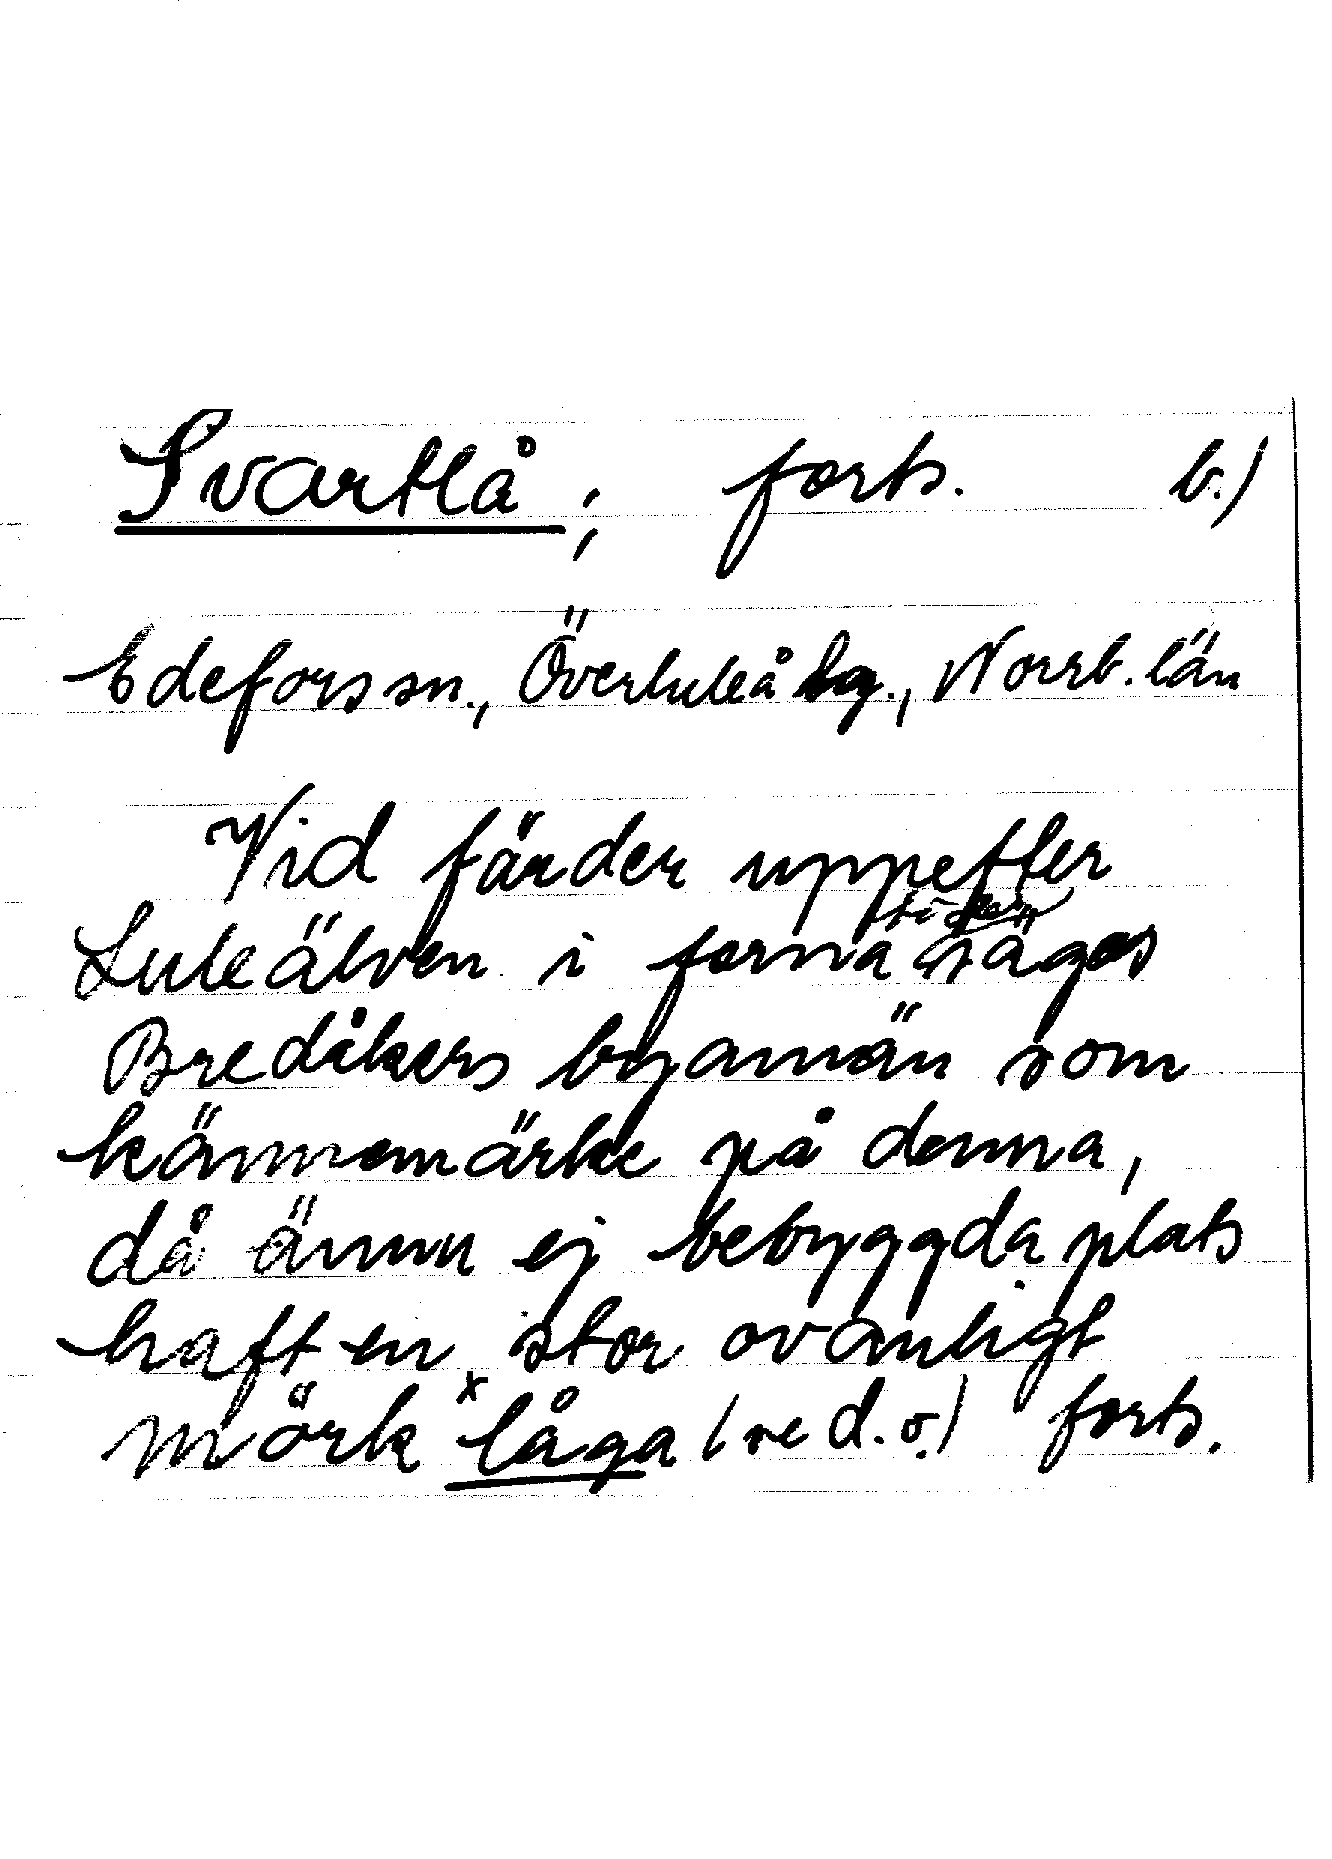 Svartlå; forts. b.)
Edefors sn., Överluleå tg., Norrb. län
Vid färder uppefter
Luleälven i forna tider sägas
Bredåkers byamän som
kännemärke på denna,
då ännu ej bebyggda plats
haft en stor ovanligt
mörk x låga (se d. o.) forts.